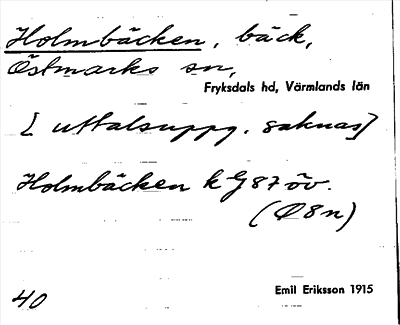 Holmbäcken, bäck,
Östmarks sn,
Fryksdals hd, Värmlands län
[uttalsuppg. saknas]
Holmbäcken k G 87 öv.
(Ø 8 n)
40
Emil Eriksson 1915